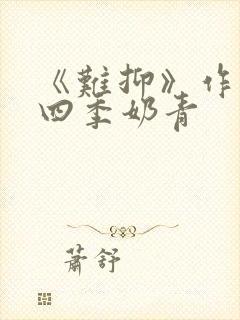 《難抑》作
四季奶青
蕭舒